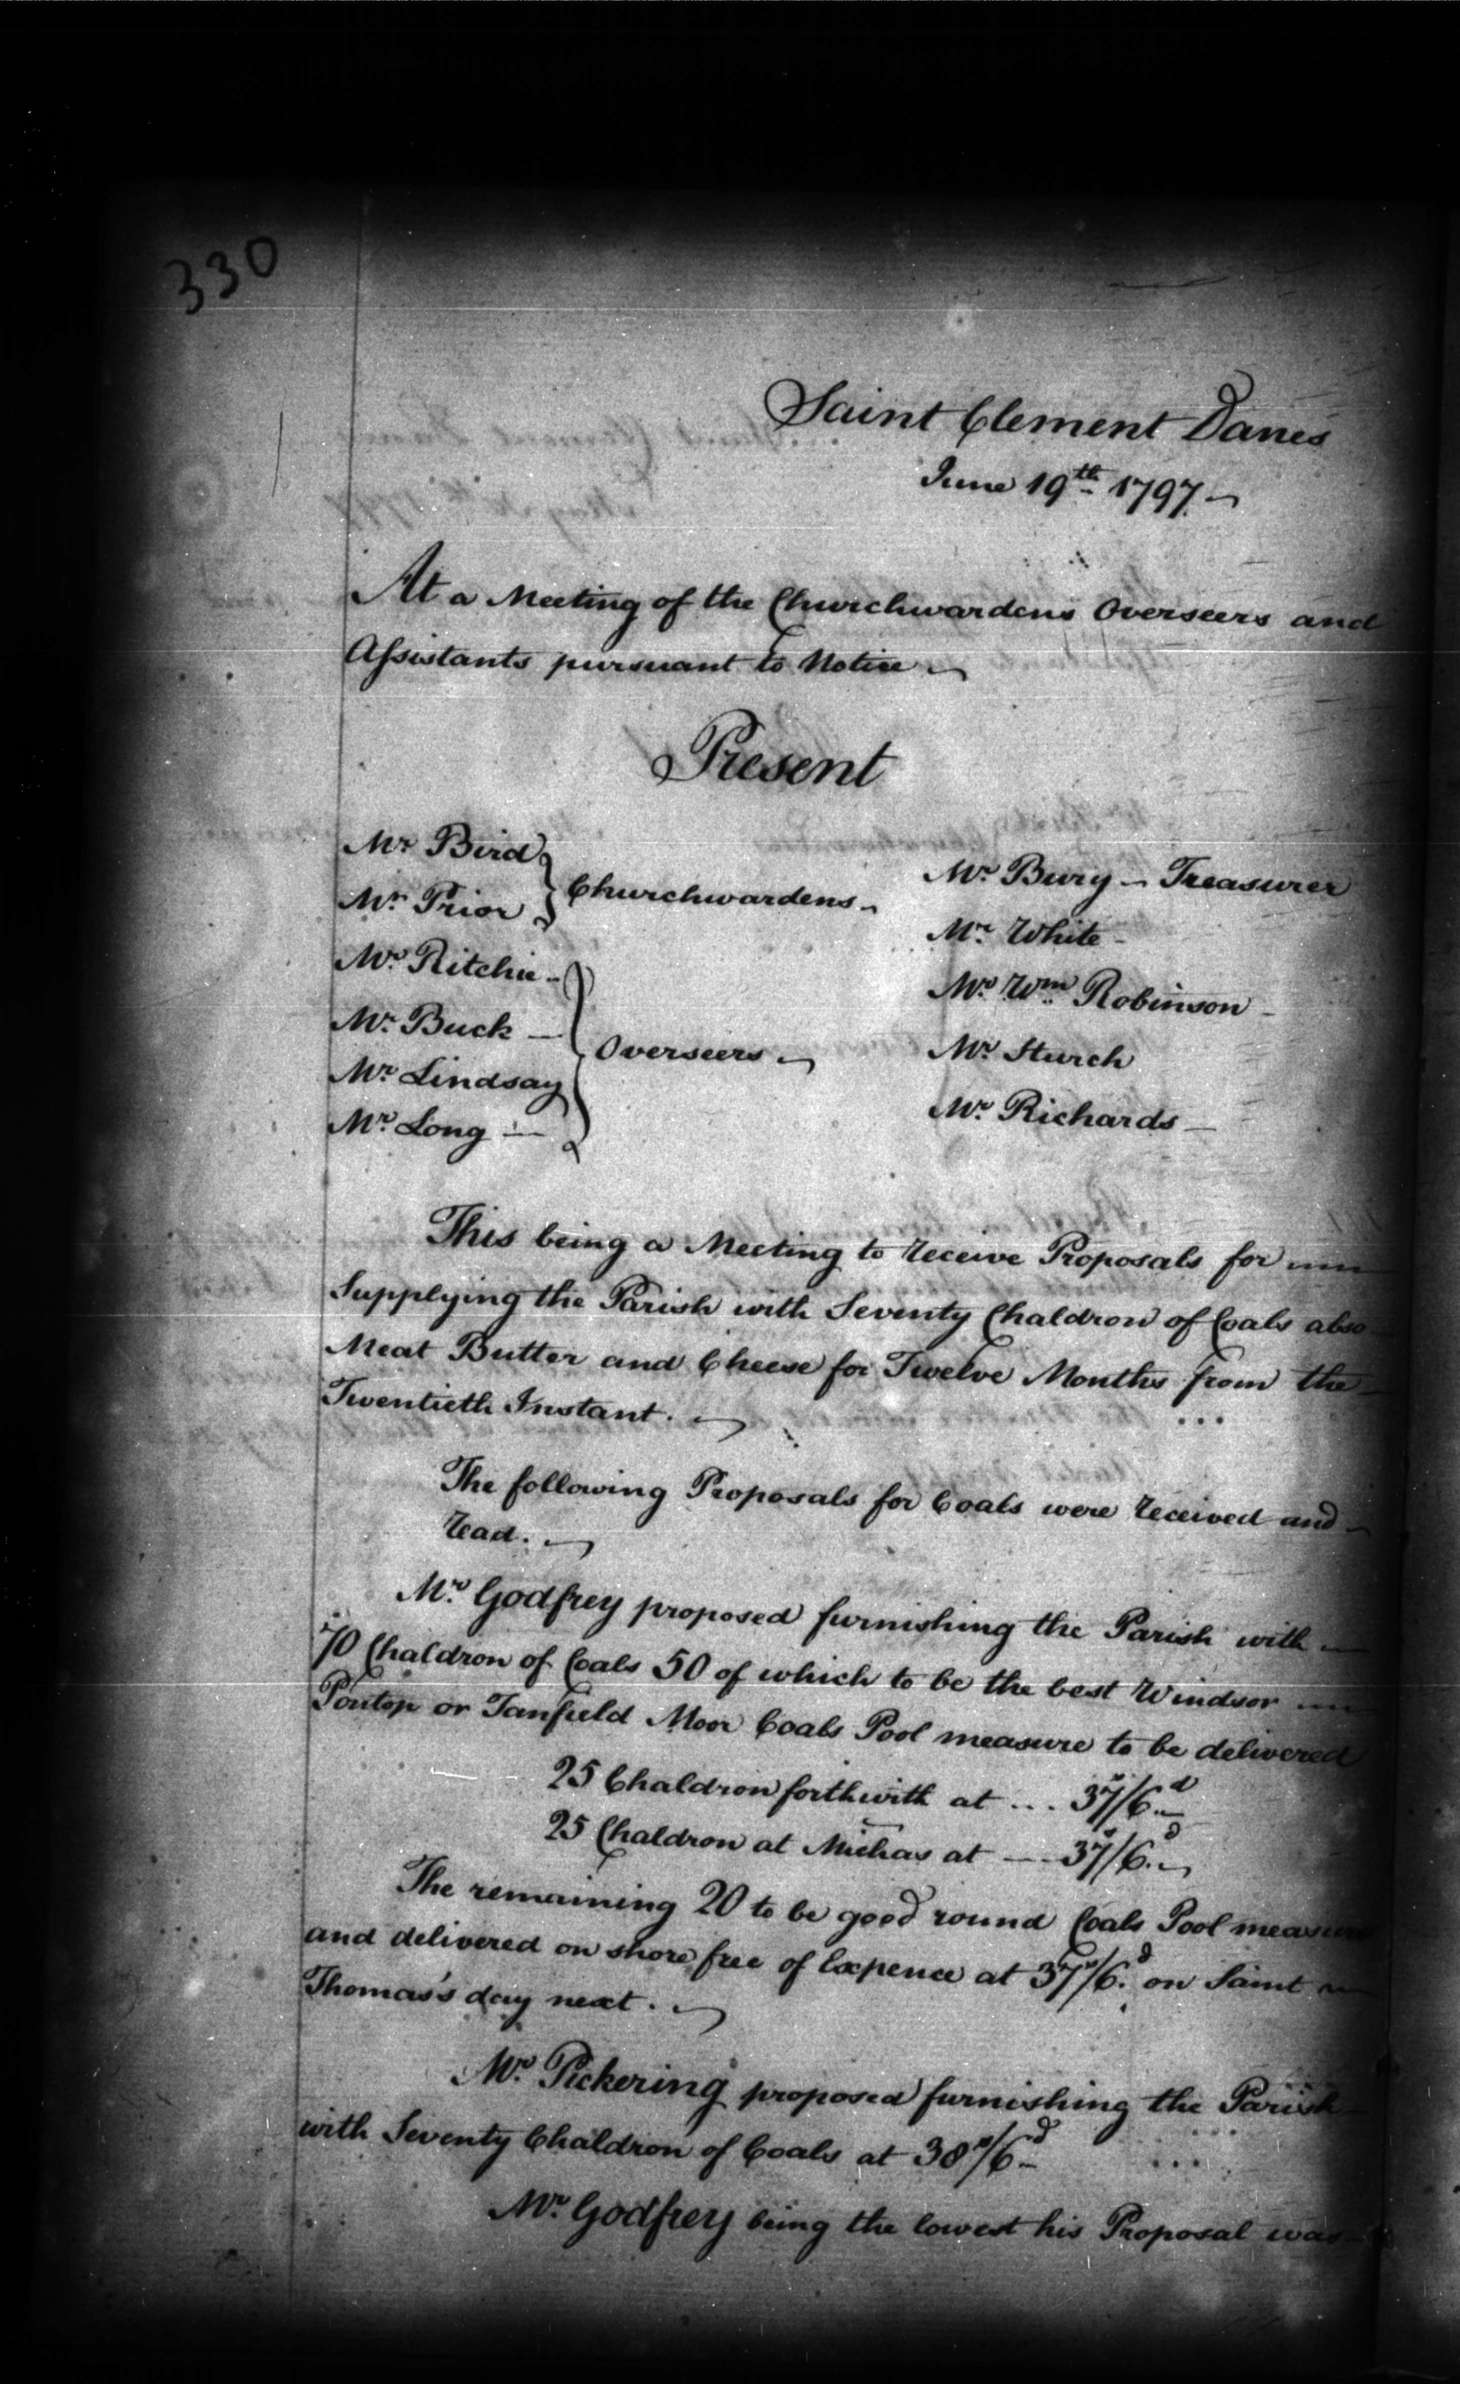 330
Saint Clement Danes
June 19th 1797
At a Meeting of the Churchwardens Overseers and
Assistants pursuant to Notice
Present
Mr. Bird
Mr. Prior
Churchwardens
Mr. Ritchie
Mr. Buck
Mr. Lindsay
Mr. Long
Overseers
Mr. Bury - Treasurer
Mr. White
Mr. Wm. Robinson
Mr. Sturch
Mr. Richards
This being a Meeting to receive Proposals for
Supplying the Parish with Seventy Chaldron of Coals also
Meat Butter and Cheese for Twelve Months from the
Twentieth Instant.
The following Proposals for Coals were received and
read.
Mr. Godfrey proposed furnishing the Parish with
70 Chaldron of Coals 50 of which to be the best Windsor
Pontop or Tanfield Moor Coals Pool measure to be delivered
25 Chaldron forthwith at ... 37s/6d
25 Chaldron at Michas at — 37s/6d
The remaining 20 to be good round Coals Pool measure
and delivered on shore free of Expence at 37s/6d on Saint
Thomas's day next.
Mr. Pickering proposed furnishing the Parish
with Seventy Chaldron of Coals at 38s/6d
Mr. Godfrey being the lowest his Proposal was